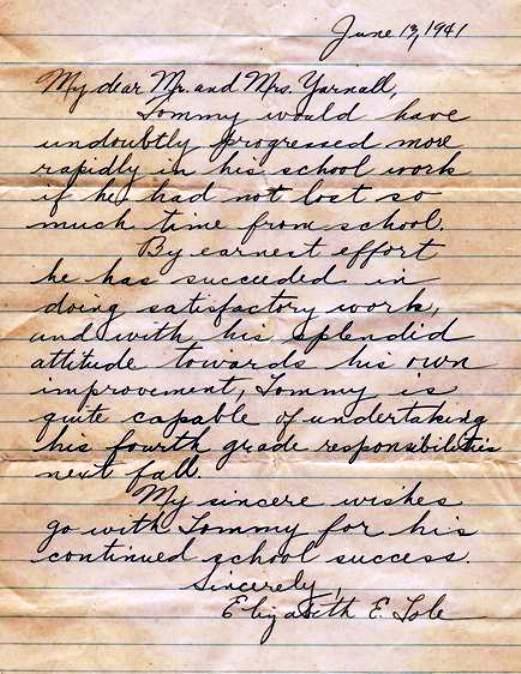 June 13, 1941
My dear Mr. and Mrs. Yarnall,
Tommy would have
undoubtly progressed more
rapidly in his school work
if he had not lost so
much time from school.
By earnest effort
he has succeeded in
doing satisfactory work,
and with his splendid
attitude towards his own
improvement, Tommy is
quite capable of undertaking
his fourth grade responsibilities
next fall.
My sincere wishes
go with Tommy for his
continued school success.
Sincerely,
Elizabeth E. Tole